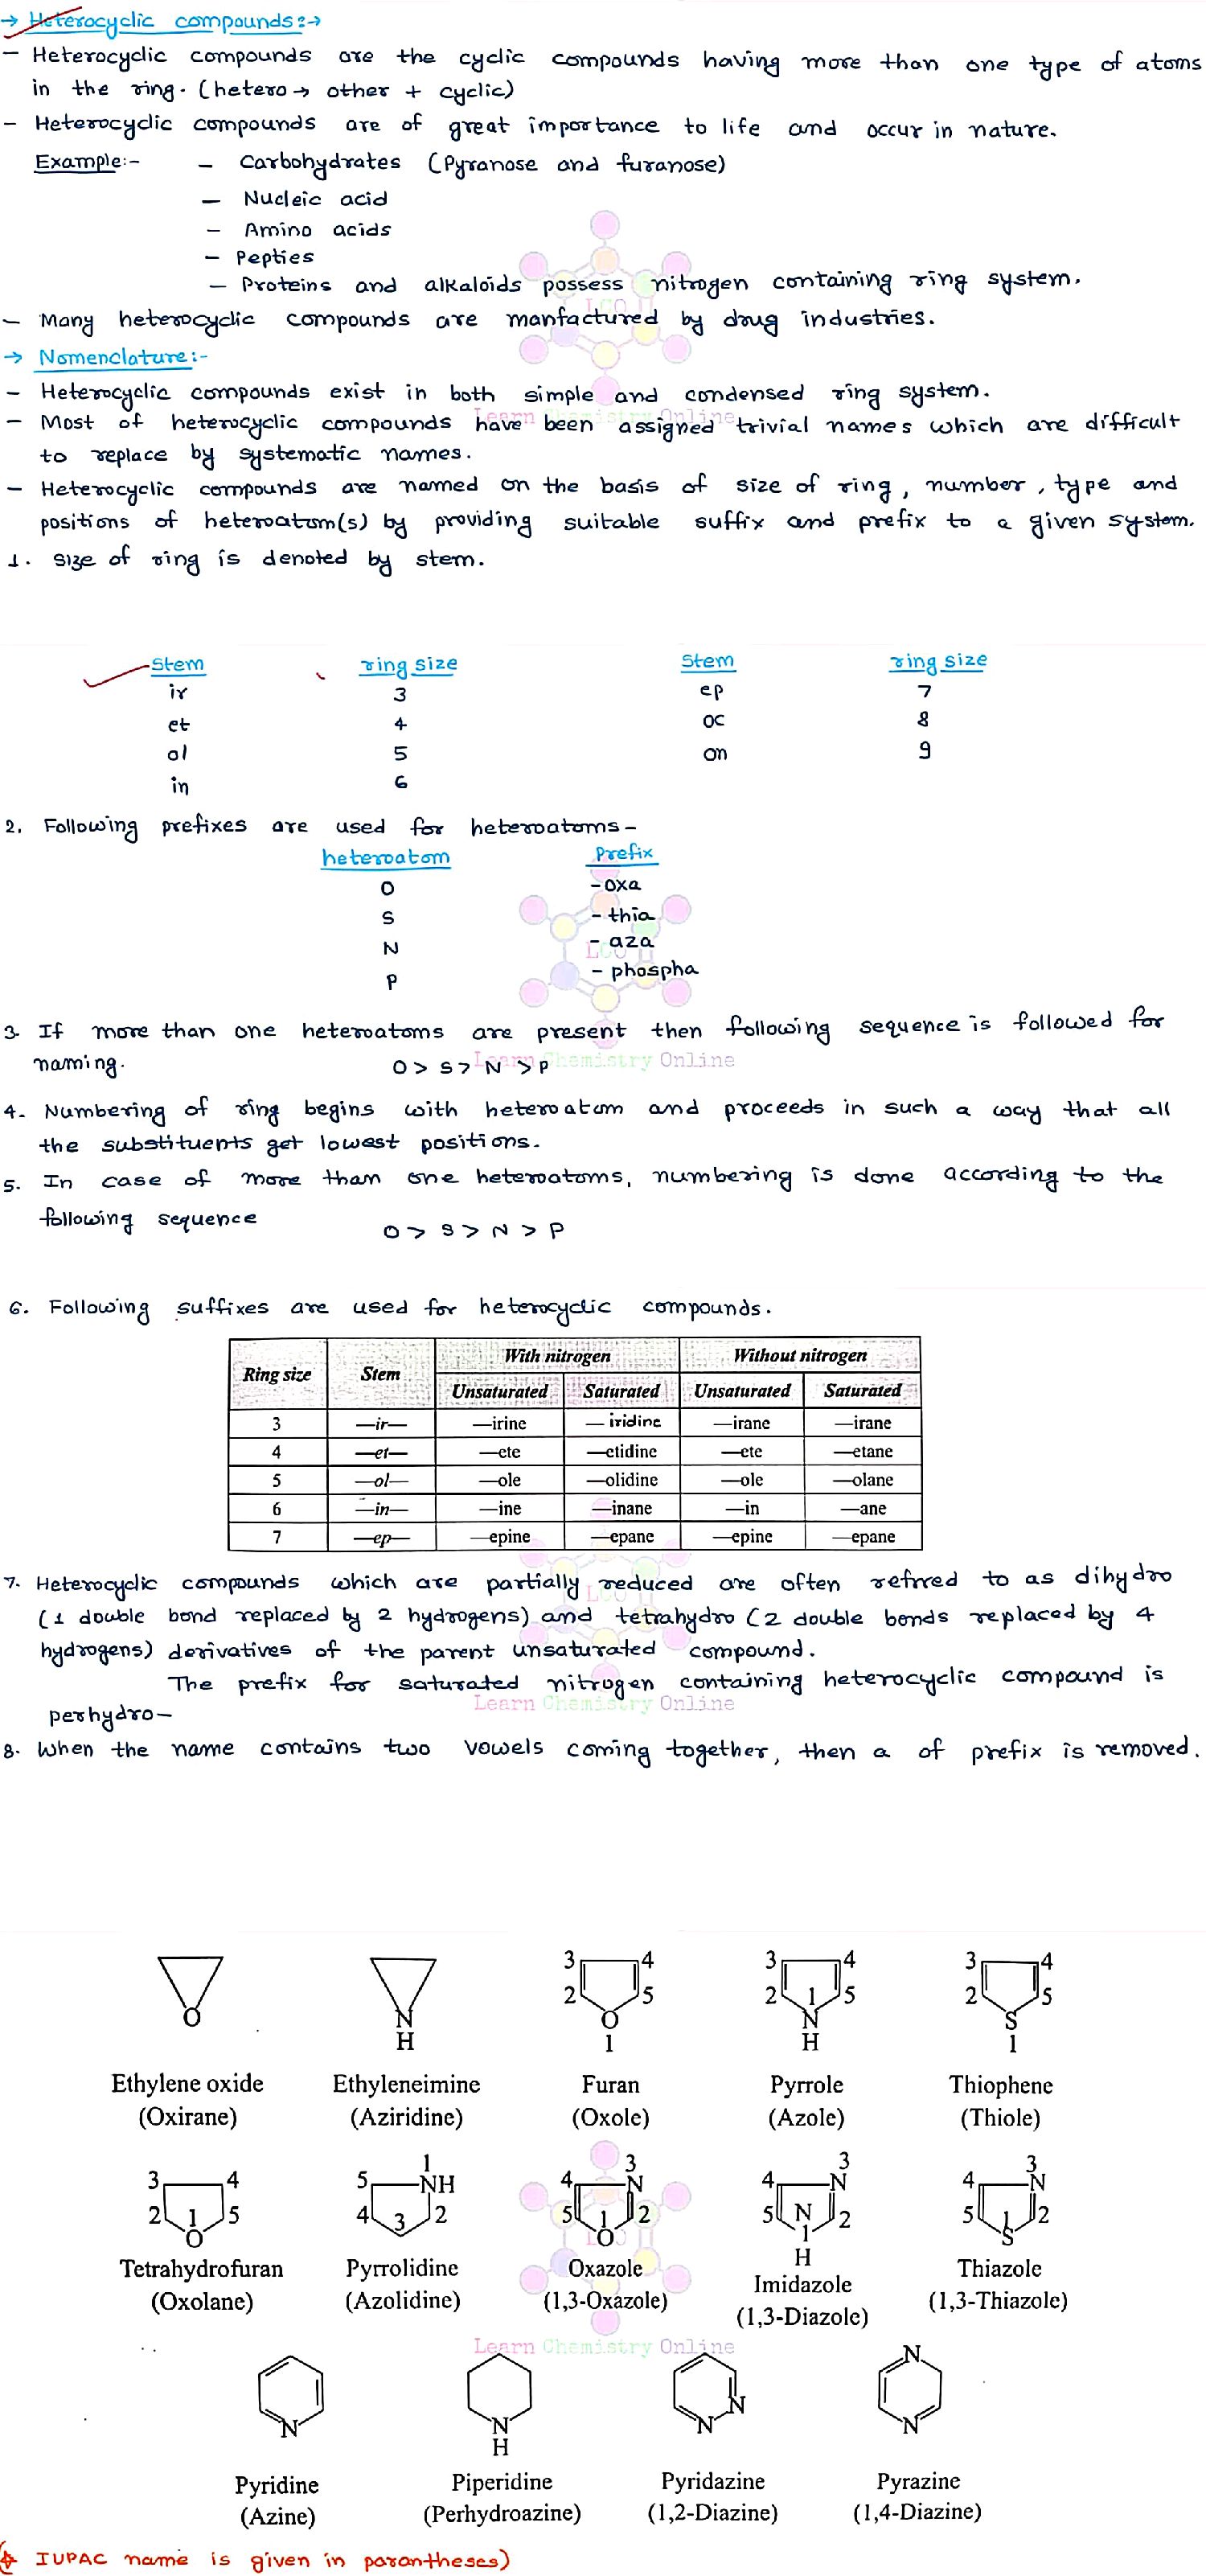 → Heterocyclic compounds:→
- Heterocyclic compounds are the cyclic compounds having more than one type of atoms
in the ring. (hetero → other + cyclic)
- Heterocyclic compounds are of great importance to life and occur in nature.
Example:- - Carbohydrates (Pyranose and furanose)
- Nucleic acid
- Amino acids
- Pepties
- Proteins and alkaloids possess nitrogen containing ring system.
- Many heterocyclic compounds are manfactured by drug industries.
→ Nomenclature:-
- Heterocyclic compounds exist in both simple and condensed ring system.
Learn Chemistry Online
- Most of heterocyclic compounds have been assigned trivial names which are difficult
to replace by systematic names.
- Heterocyclic compounds are named on the basis of size of ring, number, type and
positions of heteroatom(s) by providing suitable suffix and prefix to a given system.
1. size of ring is denoted by stem.
Stem ring size Stem ring size
ir 3 ep 7
et 4 oc 8
ol 5 on 9
in 6
2. Following prefixes are used for heteroatoms-
heteroatom Prefix
O -oxa
S -thia
N -aza
LCO
P - phospha
3. If more than one heteroatoms are present then following sequence is followed for
naming. O > S > N > P
Learn Chemistry Online
4. Numbering of ring begins with heteroatom and proceeds in such a way that all
the substituents get lowest positions.
5. In case of more than one heteroatoms, numbering is done according to the
following sequence O > S > N > P
6. Following suffixes are used for heterocyclic compounds.
Ring size Stem With nitrogen Without nitrogen
Unsaturated Saturated Unsaturated Saturated
3 —ir— —irine —iridine —irane —irane
4 —et— —ete —etidine —ete —etane
5 —ol— —ole —olidine —ole —olane
6 —in— —ine —inane —in —ane
7 —ep— —epine —epane —epine —epane
7. Heterocyclic compounds which are partially reduced are often refrred to as dihydro
(1 double bond replaced by 2 hydrogens) and tetrahydro (2 double bonds replaced by 4
hydrogens) derivatives of the parent unsaturated compound.
The prefix for saturated nitrogen containing heterocyclic compound is
Learn Chemistry Online
perhydro-
8. When the name contains two vowels coming together, then a of prefix is removed.
3 4 3 4 3 4
2 5 2 1 5 2 5
O N O N S
H 1 H 1
Ethylene oxide Ethyleneimine Furan Pyrrole Thiophene
(Oxirane) (Aziridine) (Oxole) (Azole) (Thiole)
3 4 5 1 NH 4 3 N 4 3 N 4 3 N
2 1 5 4 3 2 5 1 2 5 N 2 5 1 2
O O 1 S
H
Tetrahydrofuran Pyrrolidine Oxazole Imidazole Thiazole
(Oxolane) (Azolidine) (1,3-Oxazole) (1,3-Diazole) (1,3-Thiazole)
Learn Chemistry Online
N
N
N N N N
H
Pyridine Piperidine Pyridazine Pyrazine
(Azine) (Perhydroazine) (1,2-Diazine) (1,4-Diazine)
(* IUPAC name is given in parantheses)